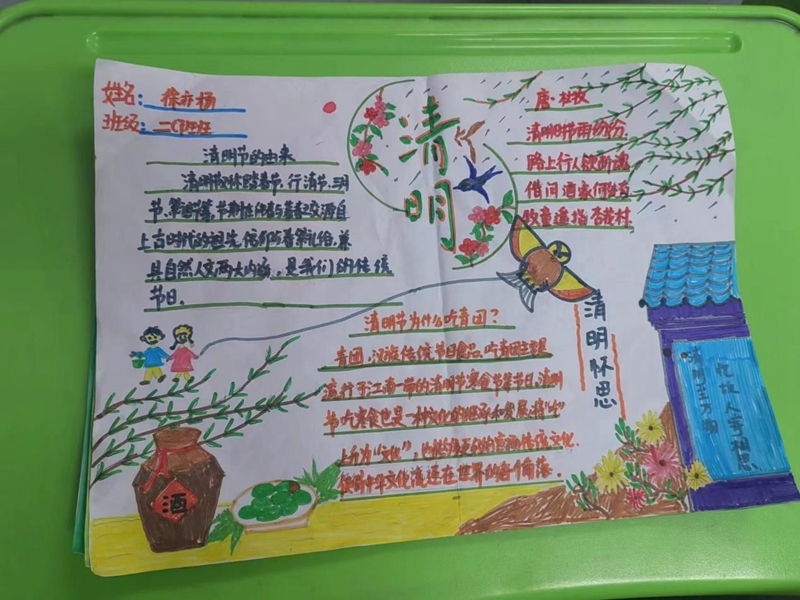 姓名: 徐亦杨
班级: 二(1)班
清明
唐·杜牧
清明时节雨纷纷
路上行人欲断魂
借问酒家何处有
牧童遥指杏花村
清明节的由来
清明节又称踏青节、行清节、三月
节、祭祖节,节期在仲春与暮春之交,源自
上古时代的祖先信仰与春祭礼俗,兼
具自然人文两大内涵,是我们的传统
节日。
清明节为什么吃青团?
青团,汉族传统节日食品,吃青团主要是
流行于江南一带的清明节寒食节等节日,清明
节吃寒食也是一种文化的继承和发展,将“吃”
上升为“文化”,
使得中华文化流逐在世界的每个角落。
清明怀思
酒
忆故人寄相思